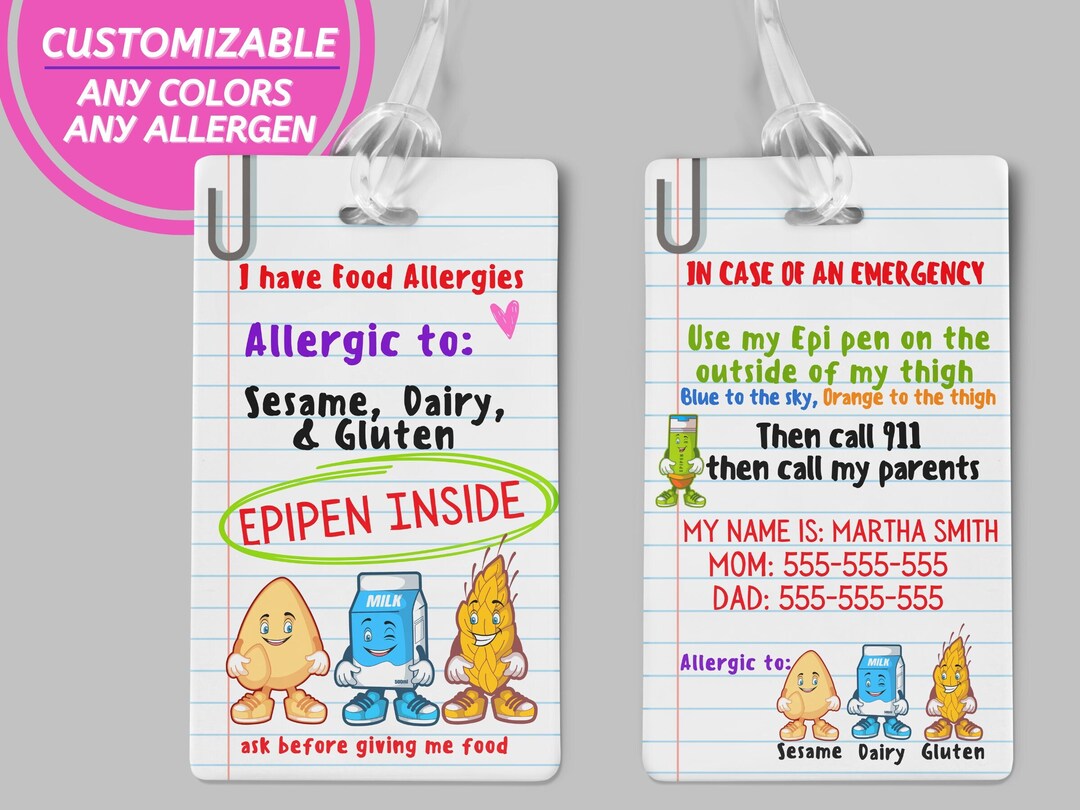 CUSTOMIZABLE
ANY COLORS
ANY ALLERGEN
I have Food Allergies
Allergic to:
Sesame, Dairy,
& Gluten
EPIPEN INSIDE
MILK
ask before giving me food
IN CASE OF AN EMERGENCY
Use my Epi pen on the
outside of my thigh
Blue to the sky, Orange to the thigh
Then call 911
then call my parents
MY NAME IS: MARTHA SMITH
MOM: 555-555-555
DAD: 555-555-555
Allergic to:
MILK
Sesame Dairy Gluten